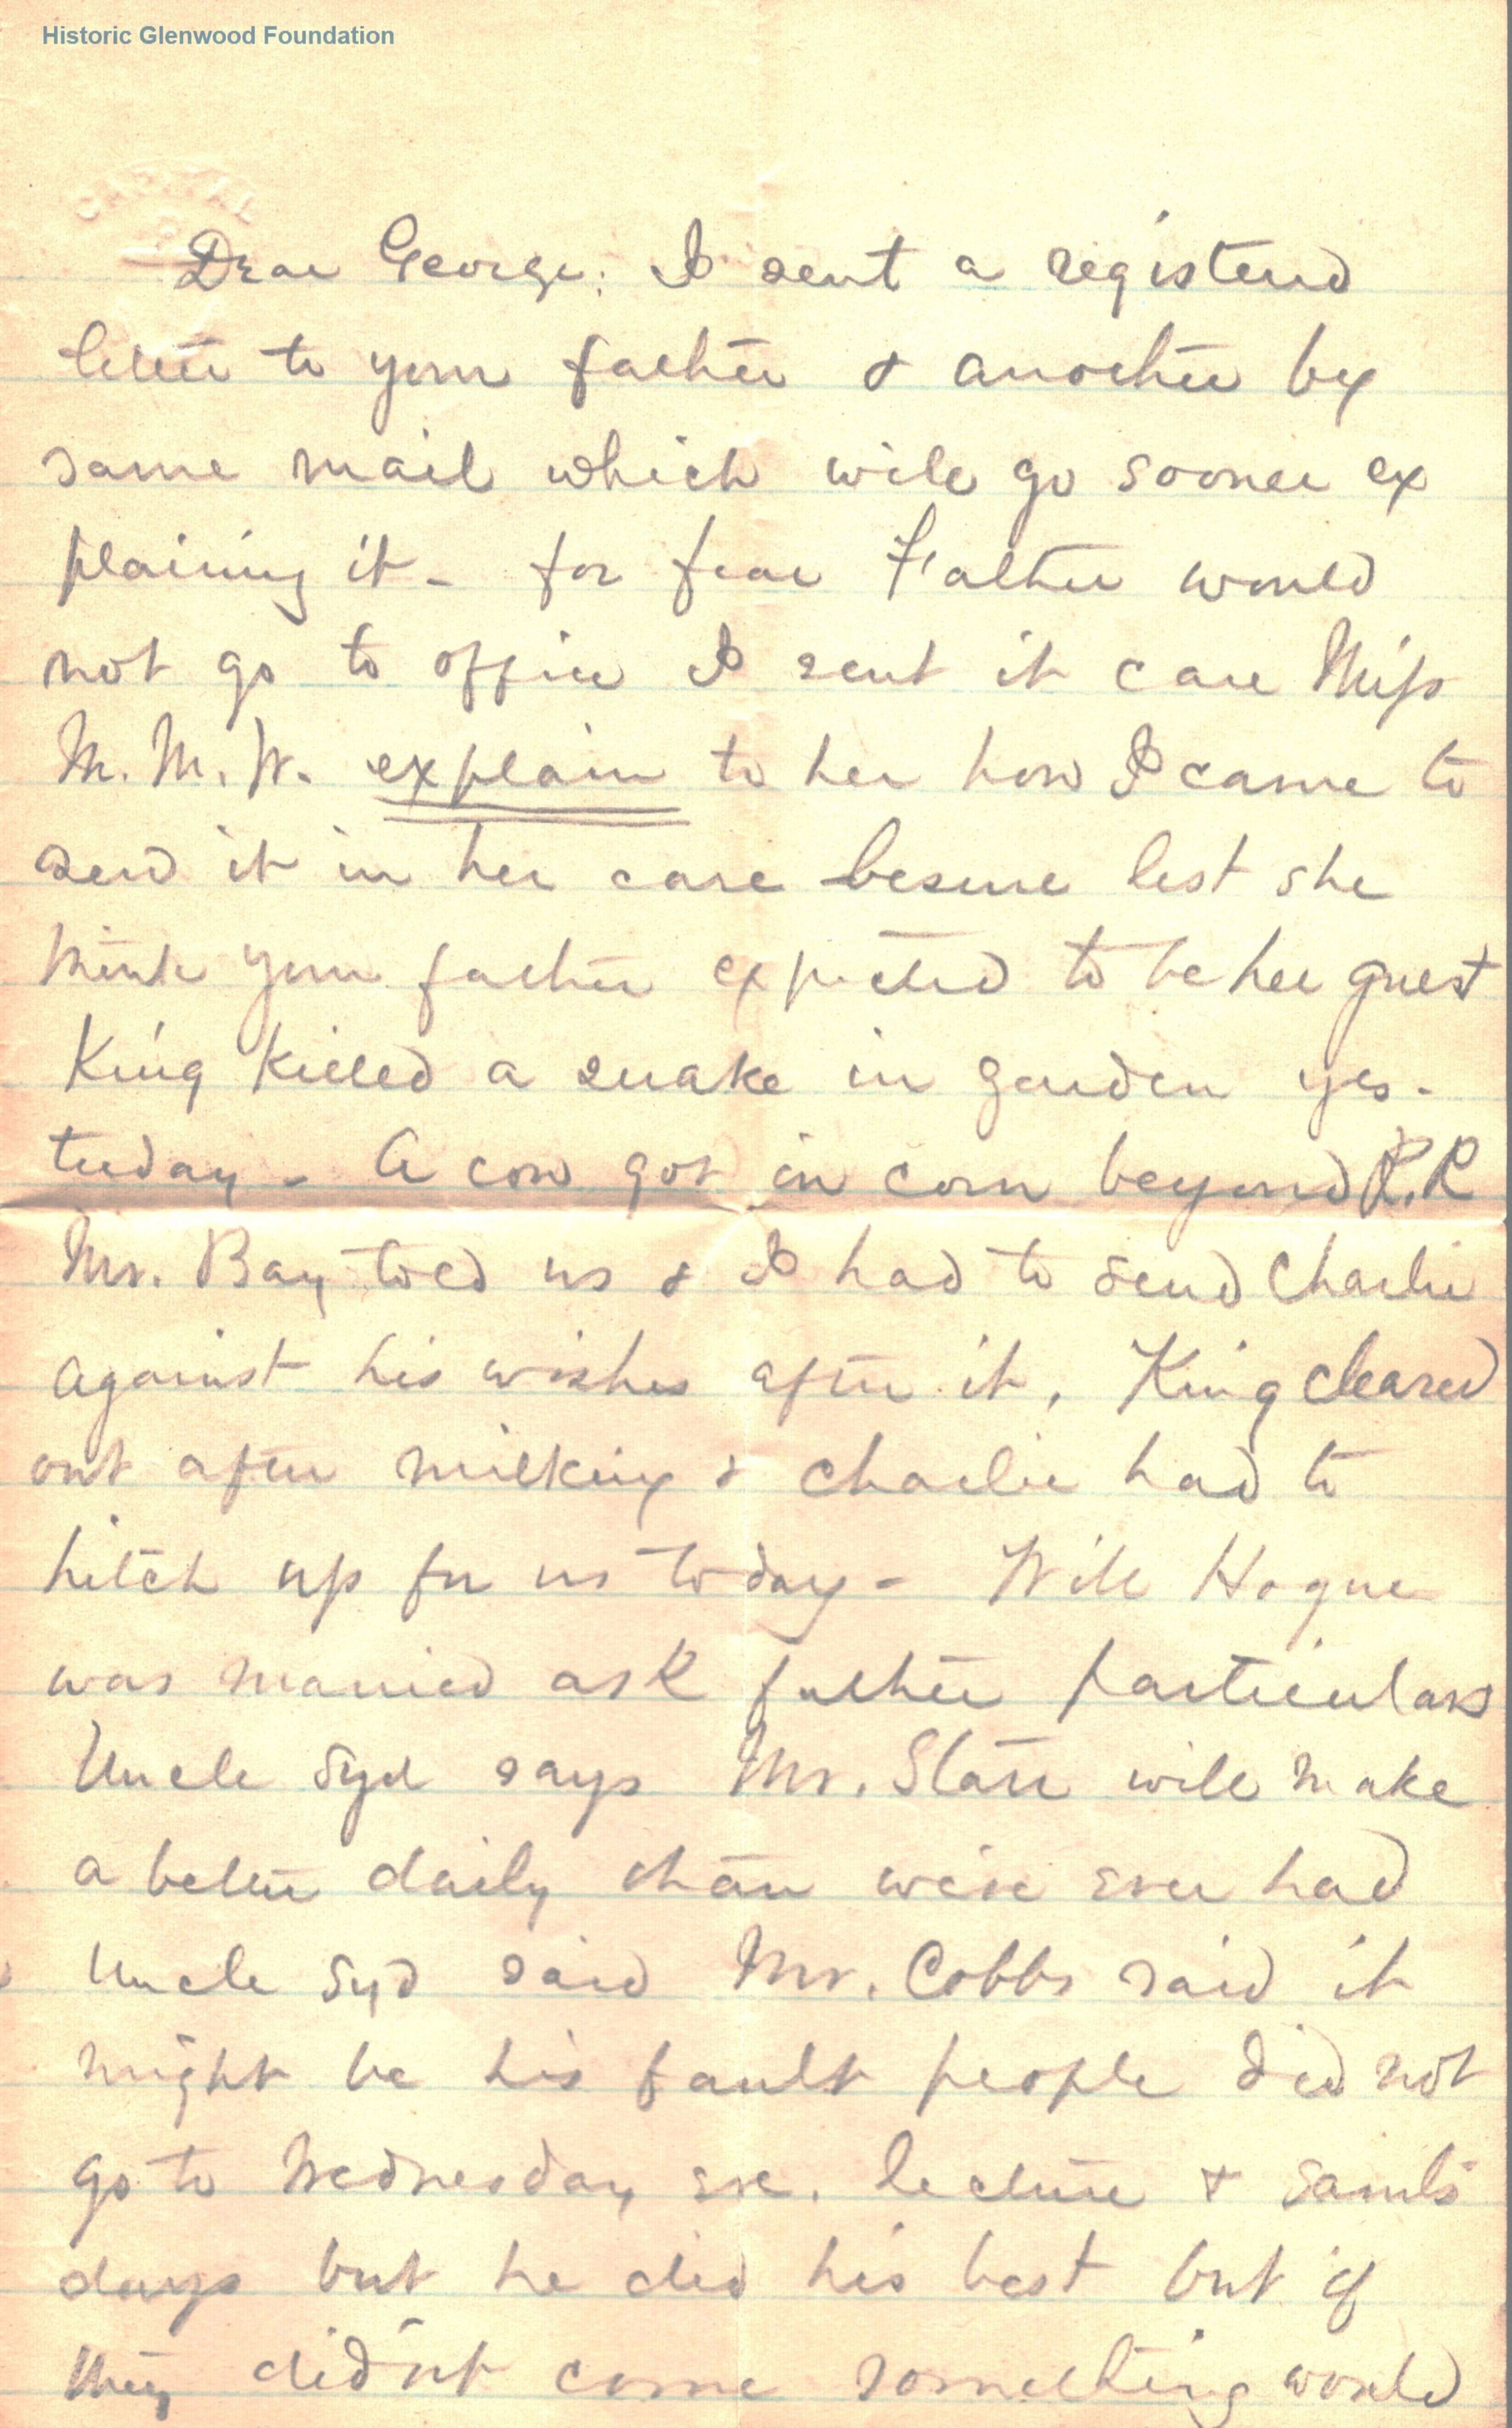 Historic Glenwood Foundation
CAPITAL
Dear George: I sent a registered
letter to your father & another by
same mail which will go sooner ex
plaining it - for fear Father would
not go to office I sent it care Miss
M. M. W. explain to her how I came to
send it in her care besure lest she
think your father expected to be her guest
King killed a snake in garden yes-
terday - A cow got in corn beyond R.R
Mr. Bay told us & I had to send Charlie
against his wishes after it. King cleared
out after milking & Charlie had to
hitch up for us to day - Will Hogue
was married ask father particulars
Uncle Syd says Mr. Starr will make
a better daily than we've ever had
Uncle Syd said Mr. Cobbs said it
might be his fault people did not
go to Wednesday eve. lecture & Saint's
days but he did his best but if
they didn't come something would